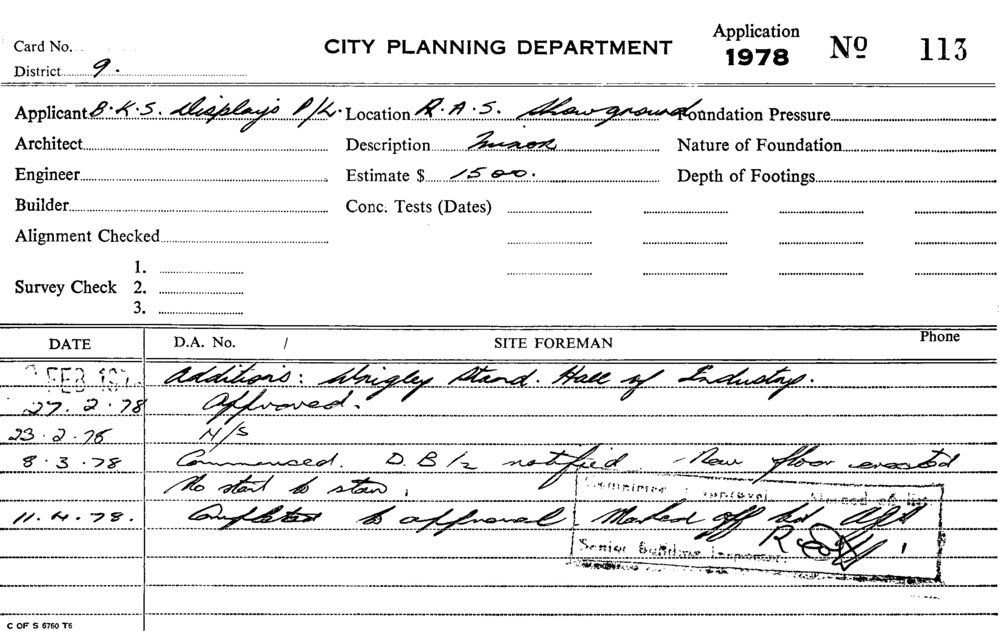 Card No.
CITY PLANNING DEPARTMENT
Application
1978
Nº 113
District 9.
Applicant B.K.S. Displays P/L. Location R.A.S. Showground Foundation Pressure
Architect Description Minor Nature of Foundation
Engineer Estimate $ 1500. Depth of Footings
Builder Conc. Tests (Dates)
Alignment Checked
Survey Check 1.
2.
3.
DATE D.A. No. / SITE FOREMAN Phone
FEB 197 Additions: Wrigley Stand. Hall of Industry.
27.2.78 Approved.
23.2.78 N/S
8.3.78 Commenced. D.B. notified New floor erected
No start to
11.4.78. Completed to approval Marked off
Senior Building Inspector
C OF S 6760 T6